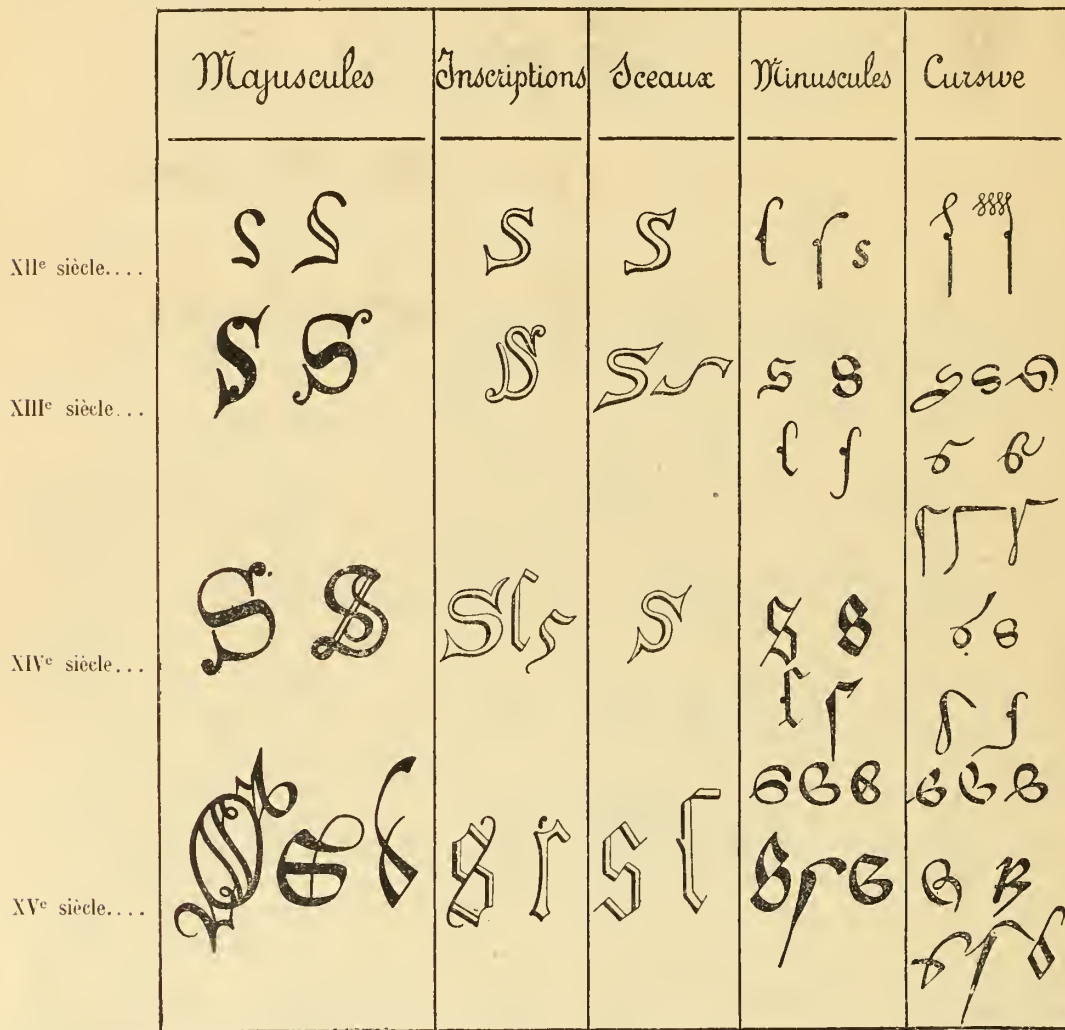 Majuscules Inscriptions Sceaux Minuscules Cursive
XIIe siècle.... S S S S ſ ſ s ſ ſ
XIIIe siècle... S S S S s s s s s s
ſ ſ s s
ſ ſ ſ
XIVe siècle... S S S ſ s S s s s s
ſ ſ ſ ſ
s s s s s s
XVe siècle.... S S s s ſ s ſ s ſ s s s
s ſ s